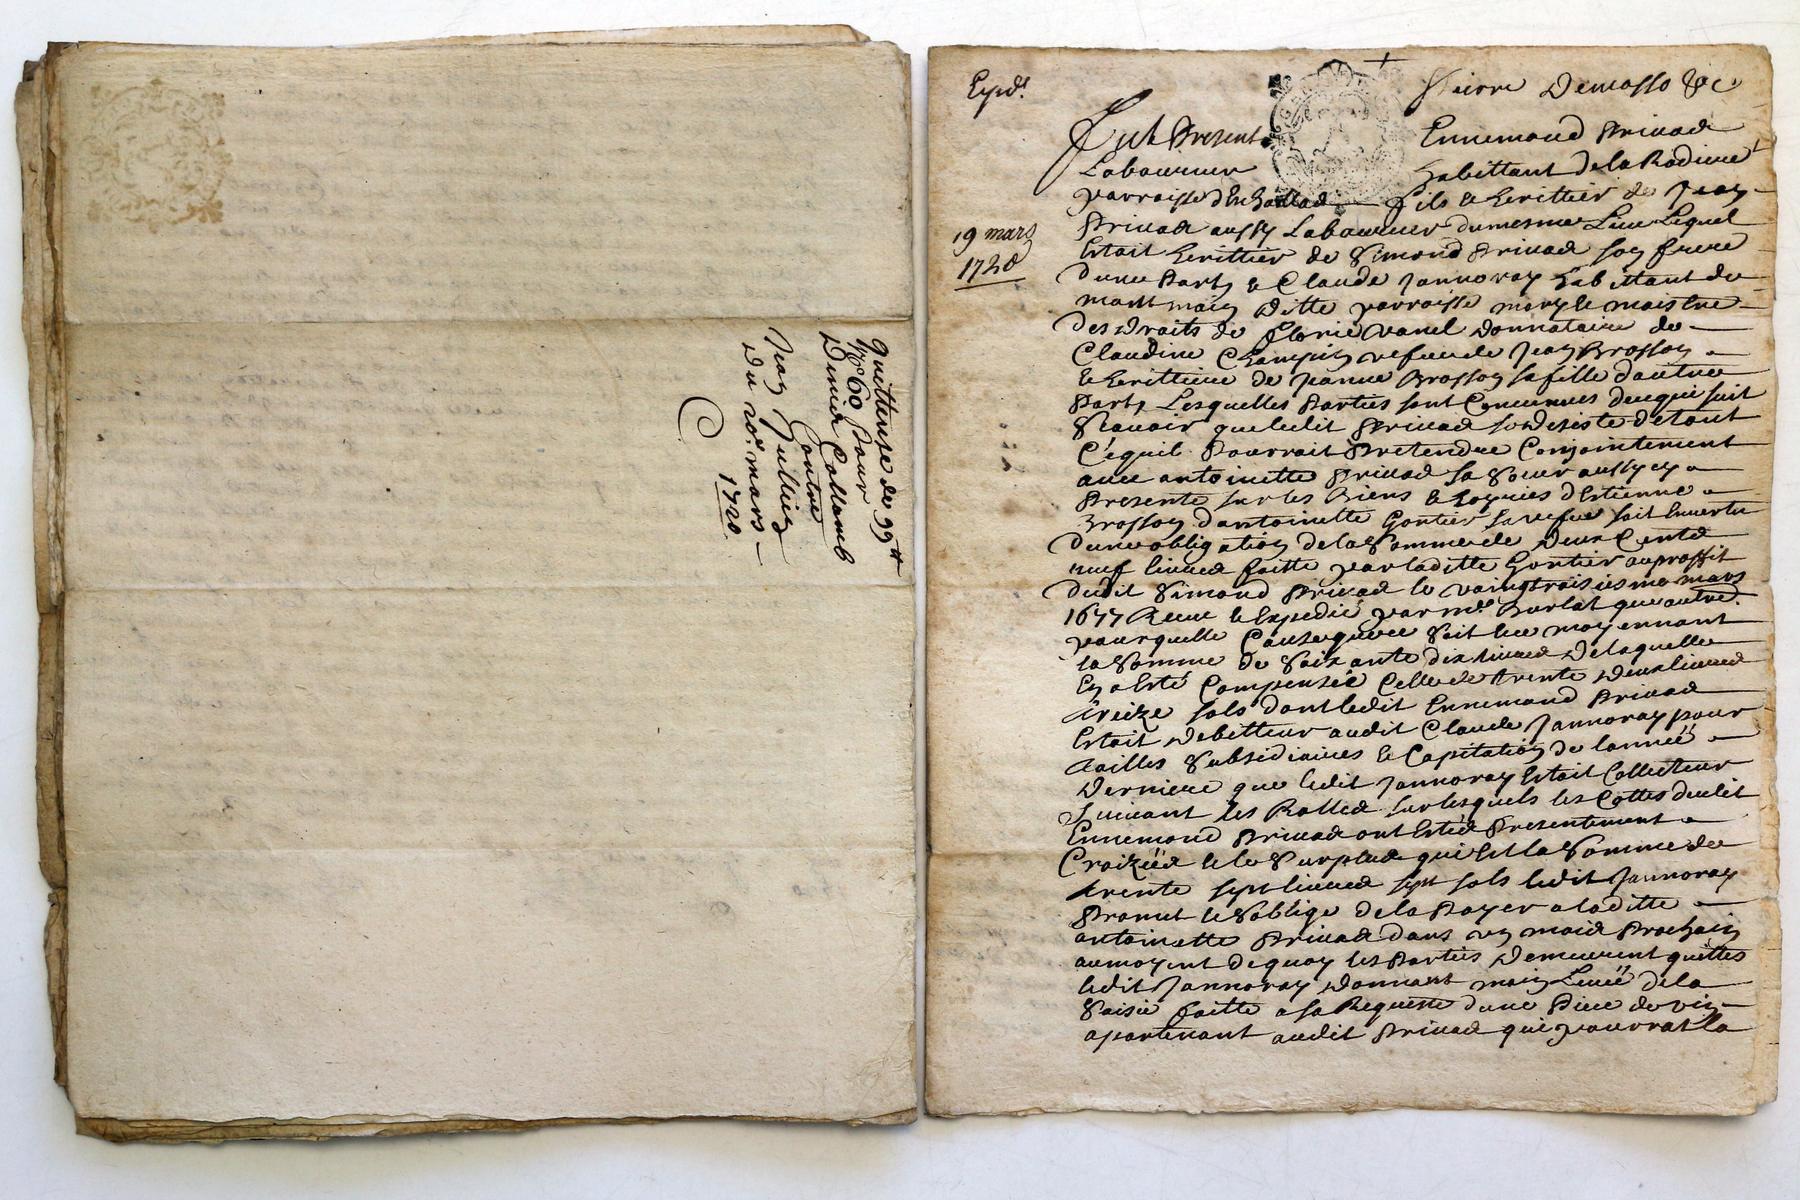 Quittense de 99tt
No 60 Pour
Denier Collomb
Contre
Jean Jullien
Du 20e mars
1720
Expd.
Pierre Demasso &c
Fut Present Ennemond Privad
Laboureur habittant de la Rodiere
parroisse d'Eschallad fils & heritier de Jean
19 mars
1720
Privad aussy Laboureur du mesme Lieu Lequel
Estoit heritier de Simond Privad son frere
d'une Part, & Claude Jannoray habittant de
mont main ditte parroisse mary & maistre
des droits de Florie Vanel donnataire de
Claudine Champin vefue de Jean Brosson
& heritiere de Jeanne Brosson sa fille d'autre
Part, Lesquelles Parties sont Conuenues de ce qui suit
Scauoir que ledit Privad se desiste de tout
Ce qu'il Pourroit Pretendre Conjointement
auec antoinette Privad sa soeur aussy cy
Presente sur les Biens & hoyries d'Estienne
Brosson d'antoinette Gontier sa vefue soit En vertu
d'une obligation de la Somme de deux Cents
neuf liures faitte par laditte Gontier au proffit
dudit Simond Privad le vaingtroisiesme mars
1677 Receu & Expedié par me. Burlat que autres
pour quelle Cause que ce soit & ce moyennant
la Somme de Soixante dix liures de laquelle
En a Esté Compensée Celle de trente deux liures
treize sols dont ledit Ennemond Privad
Estoit debitteur audit Claude Jannoray pour
tailles Subsidiaires & Capitation de l'année
derniere que ledit Jannoray Estoit Collecteur
Suiuant les Rolles sur lesquels les Cottes dudit
Ennemond Privad ont Estés Presentement
Croizéés & le Surplus qui Est la Somme de
trente sept liures sept sols ledit Jannoray
Promet & s'oblige de la Payer a laditte
antoinette Privad dans un mois Prochain
au moyent de quoy les Parties demeurent quittes
ledit Jannoray donnant main Leuéé de la
Saisie faitte a sa Requeste d'une Piece de vin
apartenant audit Privad qui pourrat la